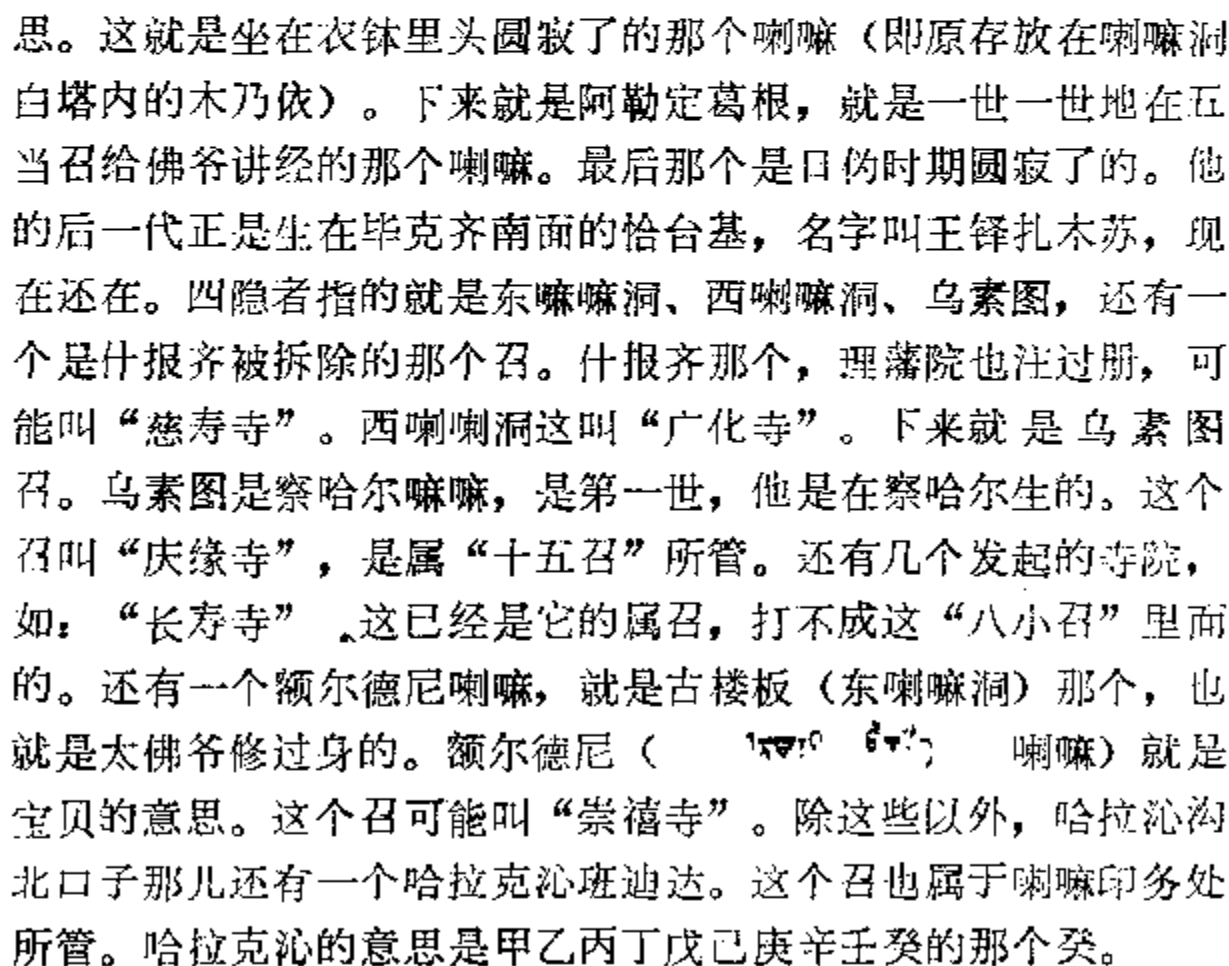 思。这就是坐在衣钵里头圆寂了的那个喇嘛（即原存放在喇嘛洞
白塔内的木乃依）。下来就是阿勒定葛根，就是一世一世地在五
当召给佛爷讲经的那个喇嘛。最后那个是日伪时期圆寂了的。他
的后一代正是生在毕克齐南面的恰台基，名字叫王铎扎木苏，现
在还在。四隐者指的就是东嘛嘛洞、西喇嘛洞、乌素图，还有一
个是什报齐被拆除的那个召。什报齐那个，理藩院也注过册，可
能叫“慈寿寺”。西喇喇洞这叫“广化寺”。下来就是乌素图
召。乌素图是察哈尔嘛嘛，是第一世，他是在察哈尔生的。这个
召叫“庆缘寺”，是属“十五召”所管。还有几个发起的寺院，
如：“长寿寺”、这已经是它的属召，打不成这“八小召”里面
的。还有一个额尔德尼喇嘛，就是古楼板（东喇嘛洞）那个，也
就是太佛爷修过身的。额尔德尼（ 喇嘛）就是
宝贝的意思。这个召可能叫“崇禧寺”。除这些以外，哈拉沁沟
北口子那儿还有一个哈拉克沁班迪达。这个召也属于喇嘛印务处
所管。哈拉克沁的意思是甲乙丙丁戊己庚辛壬癸的那个癸。